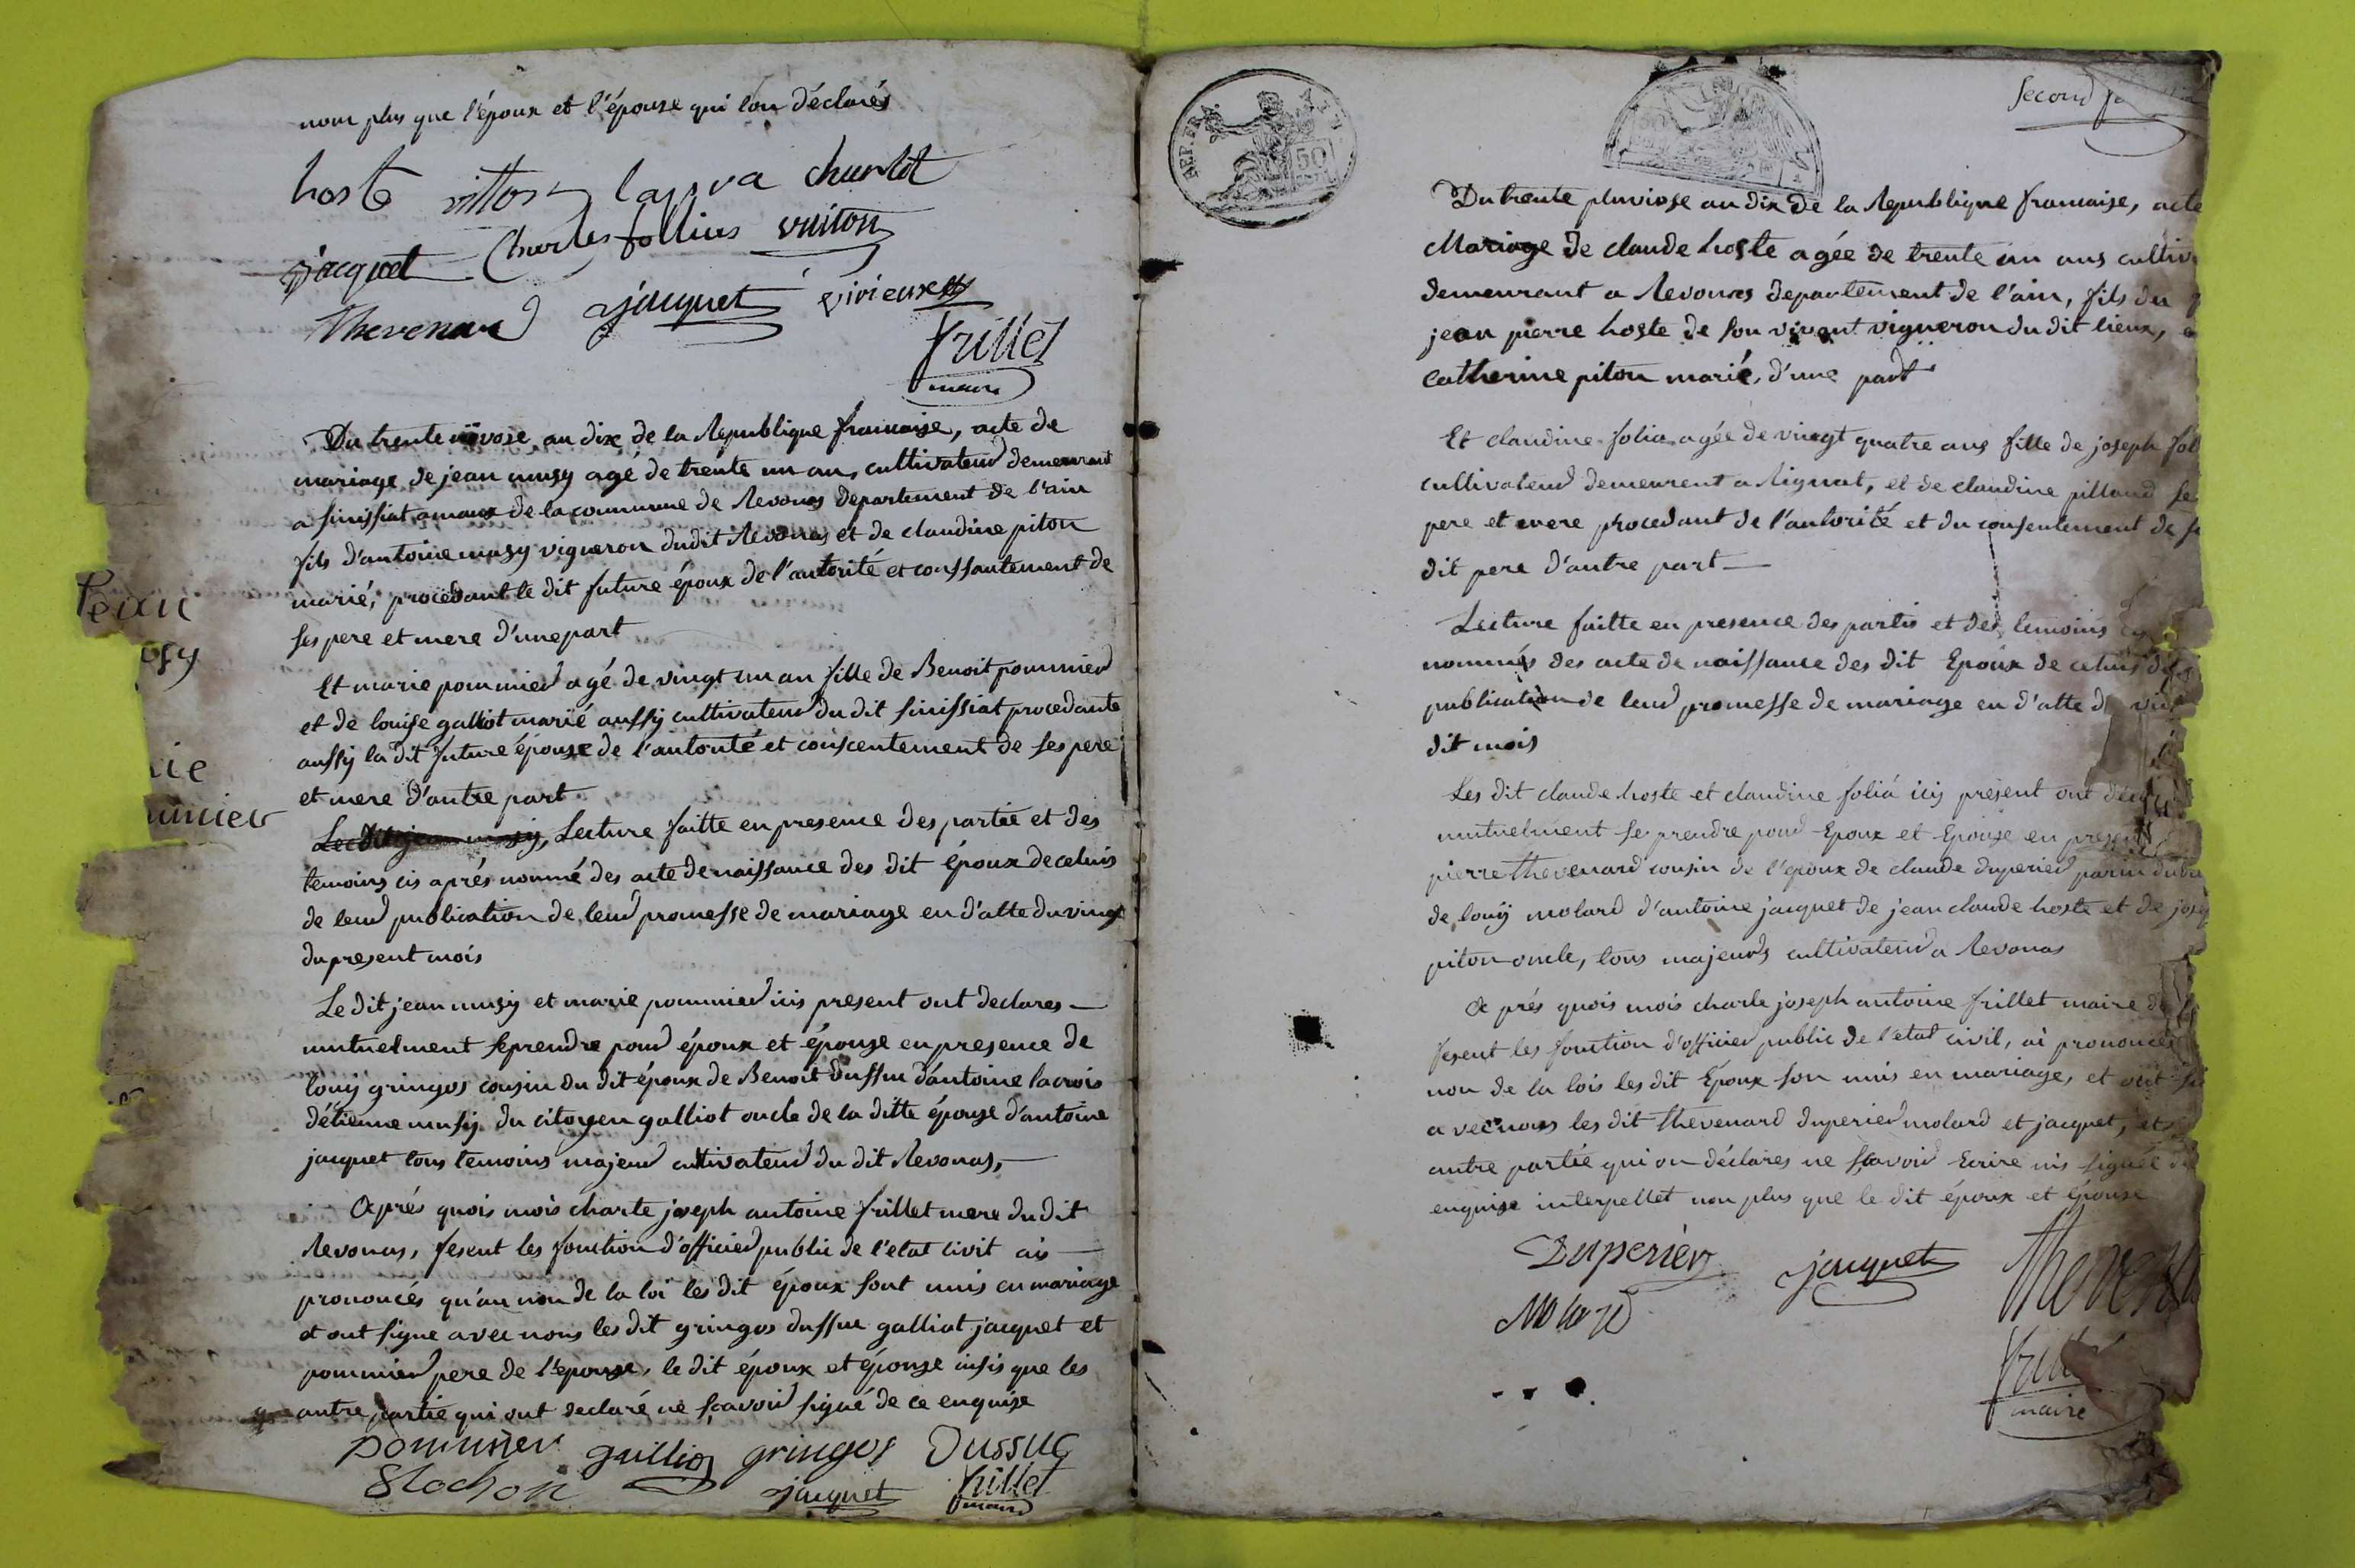 nom plus que l'époux et l'épouse qui lon déclarés
hoste vitton lacroix charlet
jacquet Charles follius vuiton
Thevenard jacquet vivieux
frillet
maire
Du trente nivose an dix de la Republique francaise, acte de
mariage de jean musy agé de trente un an, cultivateur demeurant
a sinissiat amaux de la commune de Revonas departement de l'ain
fils d'antoine musy vigneron dudit Revonas et de claudine piton
marié, procedant le dit future époux de l'autorité et conssantement de
ses pere et mere d'une part
Et marie pommier agé de vingt un an fille de Benoit pommier
et de louise galliot marié aussy cultivateur du dit sinissiat procedante
aussy la dit future épouse de l'autorité et conscentement de ses pere
et mere d'autre part
Lecture faitte en presence des partie et des
temoins cis aprés nommé des acte de naissance des dit époux de celuis
de leur publication de leur promesse de mariage en d'atte du vingt
du present mois
Le dit jean musy et marie pommier icis present ont declares
mutuelment se prendre pour époux et épouse en presence de
louis gringos cousin du dit époux de Benoit dussuc d'antoine lacrois
d'étienne musy du citoyen galliot oncle de la ditte épouse d'antoine
jacquet tous temoins majeur cultivateur du dit Revonas,
Aprés quois mois charle joseph antoine frillet mere du dit
Revonas, fesent les fonction d'officier public de l'etat civit ais
prononcés qu'au non de la loi les dit époux sont unis en mariage
et ont signe avec nous les dit gringos dussuc galliot jacquet et
pommier pere de l'epouse, le dit époux et épouse insis que les
autre partie qui ont declaré ne sçavoir signé de ce enquise
pommier galliot gringos Dussuc
Blochon jacquet frillet
maire
Jean
usy
rie
mmier
REP. FRA.
50
second
Du trente pluviose an dix de la Republique francaise, acte
Mariage de claude hoste agée de trente un ans cultiv
demeurant a Revonas departement de l'ain, fils du
jean pierre hoste de son vivant vigneron du dit lieux,
catherine piton marié, d'une part
Et claudine folia agée de vingt quatre ans fille de joseph fol
cultivateur demeurent a Rignat, et de claudine pilland se
pere et mere procedant de l'autorité et du consentement de s
dit pere d'autre part
Lecture faitte en presence des partis et des temoins
nommés des acte de naissance des dit Epoux de celuis de
publication de leur promesse de mariage en d'atte d
dit mois
Les dit claude hoste et claudine foliá icis présent ont
mutuelment se prendre pour Epoux et Epouse en presen
pierre thevenard cousin de l'époux de claude duperier
de louis molard d'antoine jacquet de jean claude hoste et de jose
piton oncle, tous majeurs cultivateur a Revonas
Aprés quois mois charle joseph antoine frillet maire d
fesent les fonction d'officier public de l'etat civil, ai prononcés
non de la lois les dit Époux son unis en mariage, et ont si
avec nous les dit thevenard duperier molard et jacquet, et
autre partie qui on déclares ne sçavoir Ecrire nis signée de
enquise interpellet non plus que le dit époux et épouse
Duperier jacquet Theven
Molard
frill
maire